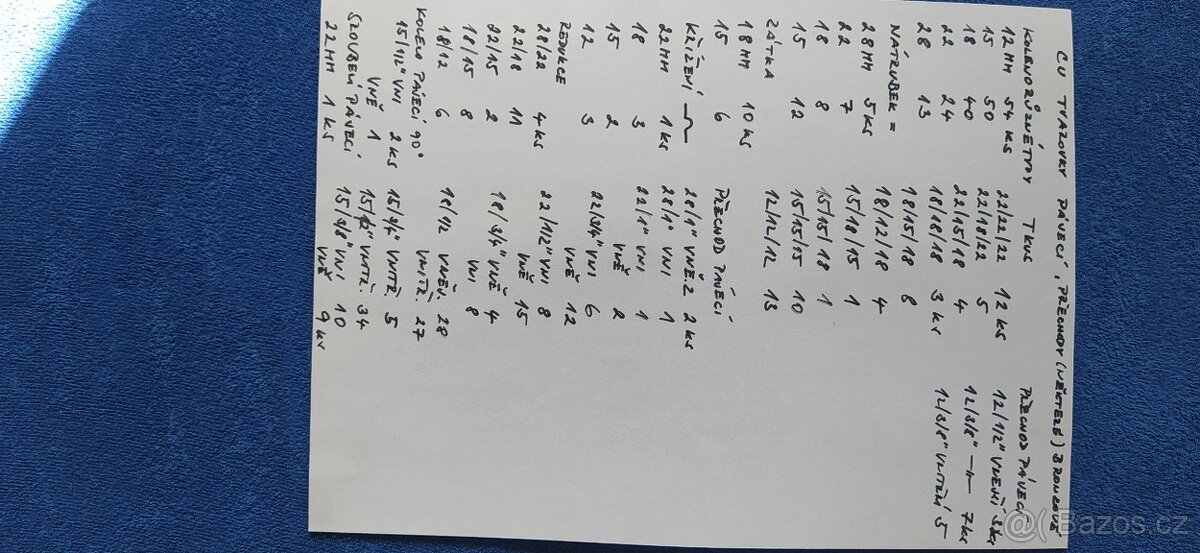 CU TVAROVKY PÁJECÍ, PŘECHODY (NĚKTERÉ) BRONZOVÉ
KOLENO RŮZNÉ TYPY
12 MM 54 KS
15 50
18 40
22 24
28 13
NÁTRUBEK =
28 MM 5 KS
22 7
18 8
15 12
ZÁTKA
18 MM 10 KS
15 6
KŘÍŽENÍ
22 MM 1 KS
18 3
15 2
12 3
REDUKCE
28/22 4 KS
22/18 11
22/15 2
18/15 8
18/12 6
KOLENO PÁJECÍ 90°
15/1/2" VNI 2 KS
VNĚ 1
ŠROUBENÍ PÁJECÍ
22 MM 1 KS
T KUS
22/22/22 12 KS
22/18/22 5
22/15/18 4
18/18/18 3 KS
18/15/18 8
18/12/18 4
15/18/15 1
15/15/18 1
15/15/15 10
12/12/12 13
PŘECHOD PÁJECÍ
28/1" VNĚ 2 KS
28/1" VNI 1
22/1" VNI 1
VNĚ 2
22/3/4" VNI 6
VNĚ 12
22/1/2" VNI 8
VNĚ 15
18/3/4" VNĚ 4
VNI 8
18/1/2 VNĚJ. 28
VNITŘ. 27
15/3/4" VNITŘ. 5
15/1/2" VNITŘ. 34
15/3/8" VNI 10
VNĚ 9 KS
PŘECHOD PÁJECÍ
12/1/2" VNEJŠÍ 3 KS
12/3/8" 7 KS
12/3/8" VNITŘNÍ 5
@ Bazos.cz